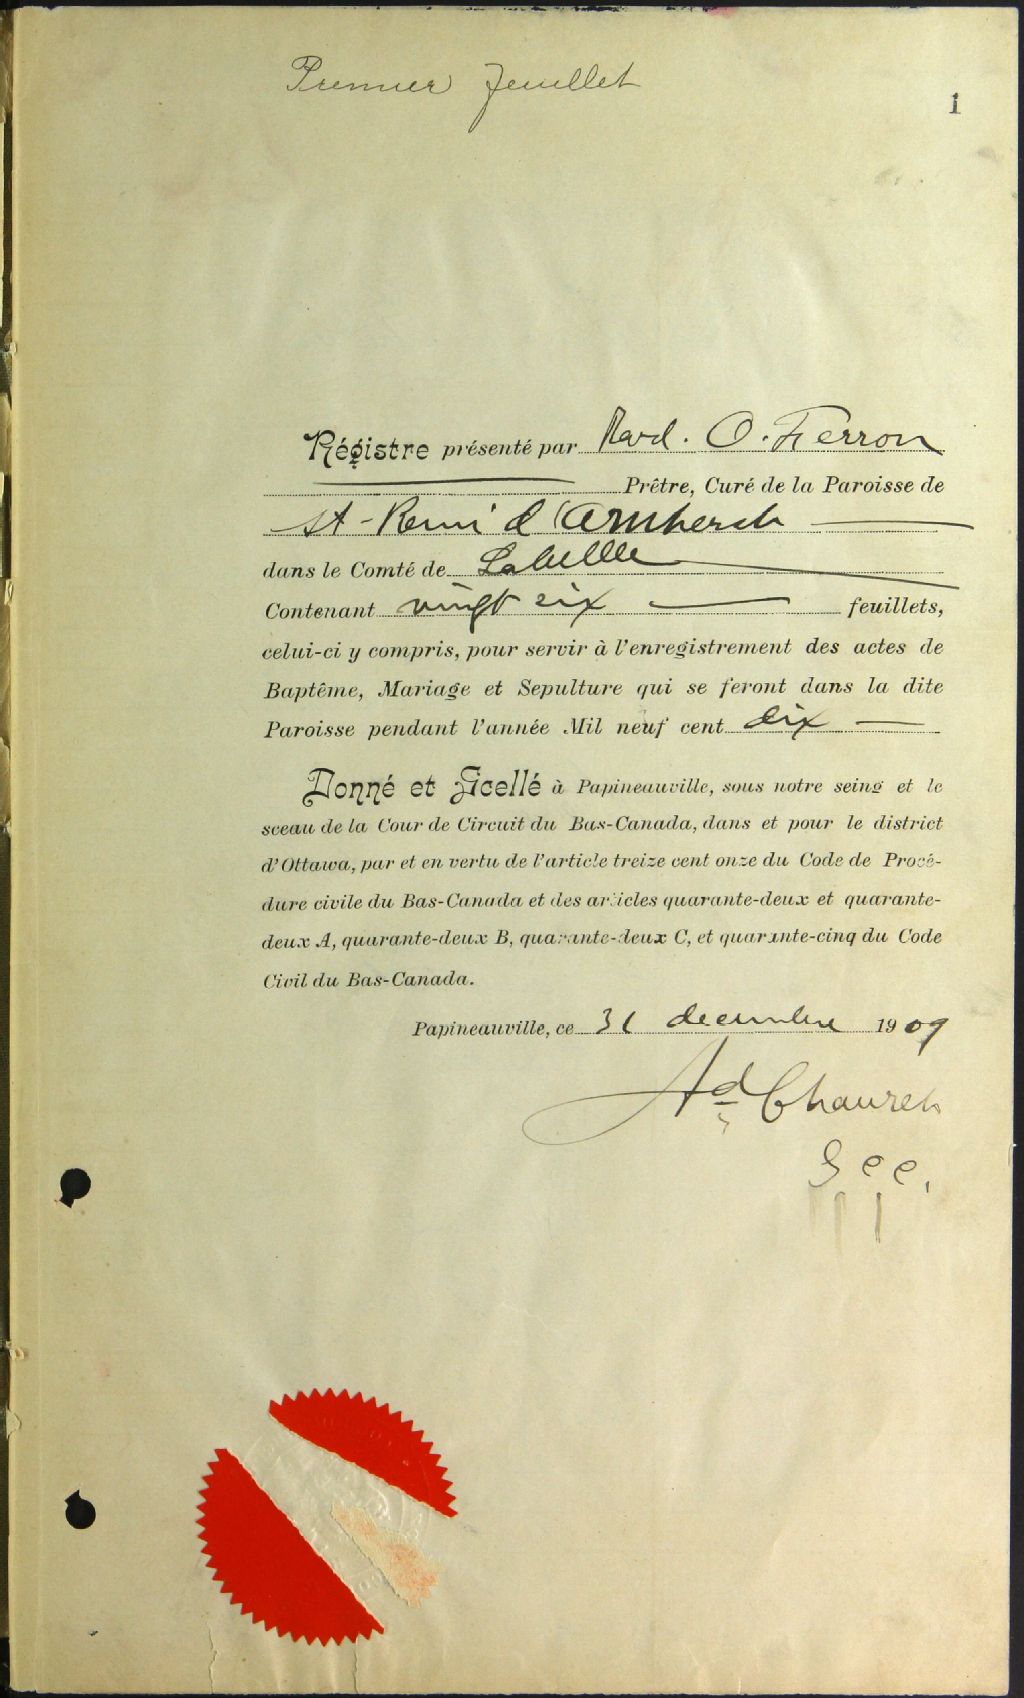 Premier feuillet
1
Régistre présenté par Revd. O. Ferron
Prêtre, Curé de la Paroisse de
St-Remi d'Amherst
dans le Comté de Labelle
Contenant vingt six feuillets,
celui-ci y compris, pour servir à l'enregistrement des actes de
Baptême, Mariage et Sepulture qui se feront dans la dite
Paroisse pendant l'année Mil neuf cent dix
Donné et Scellé à Papineauville, sous notre seing et le
sceau de la Cour de Circuit du Bas-Canada, dans et pour le district
d'Ottawa, par et en vertu de l'article treize cent onze du Code de Procé-
dure civile du Bas-Canada et des articles quarante-deux et quarante-
deux A, quarante-deux B, quarante-deux C, et quarante-cinq du Code
Civil du Bas-Canada.
Papineauville, ce 31 decembre 1909
Ad Chauret